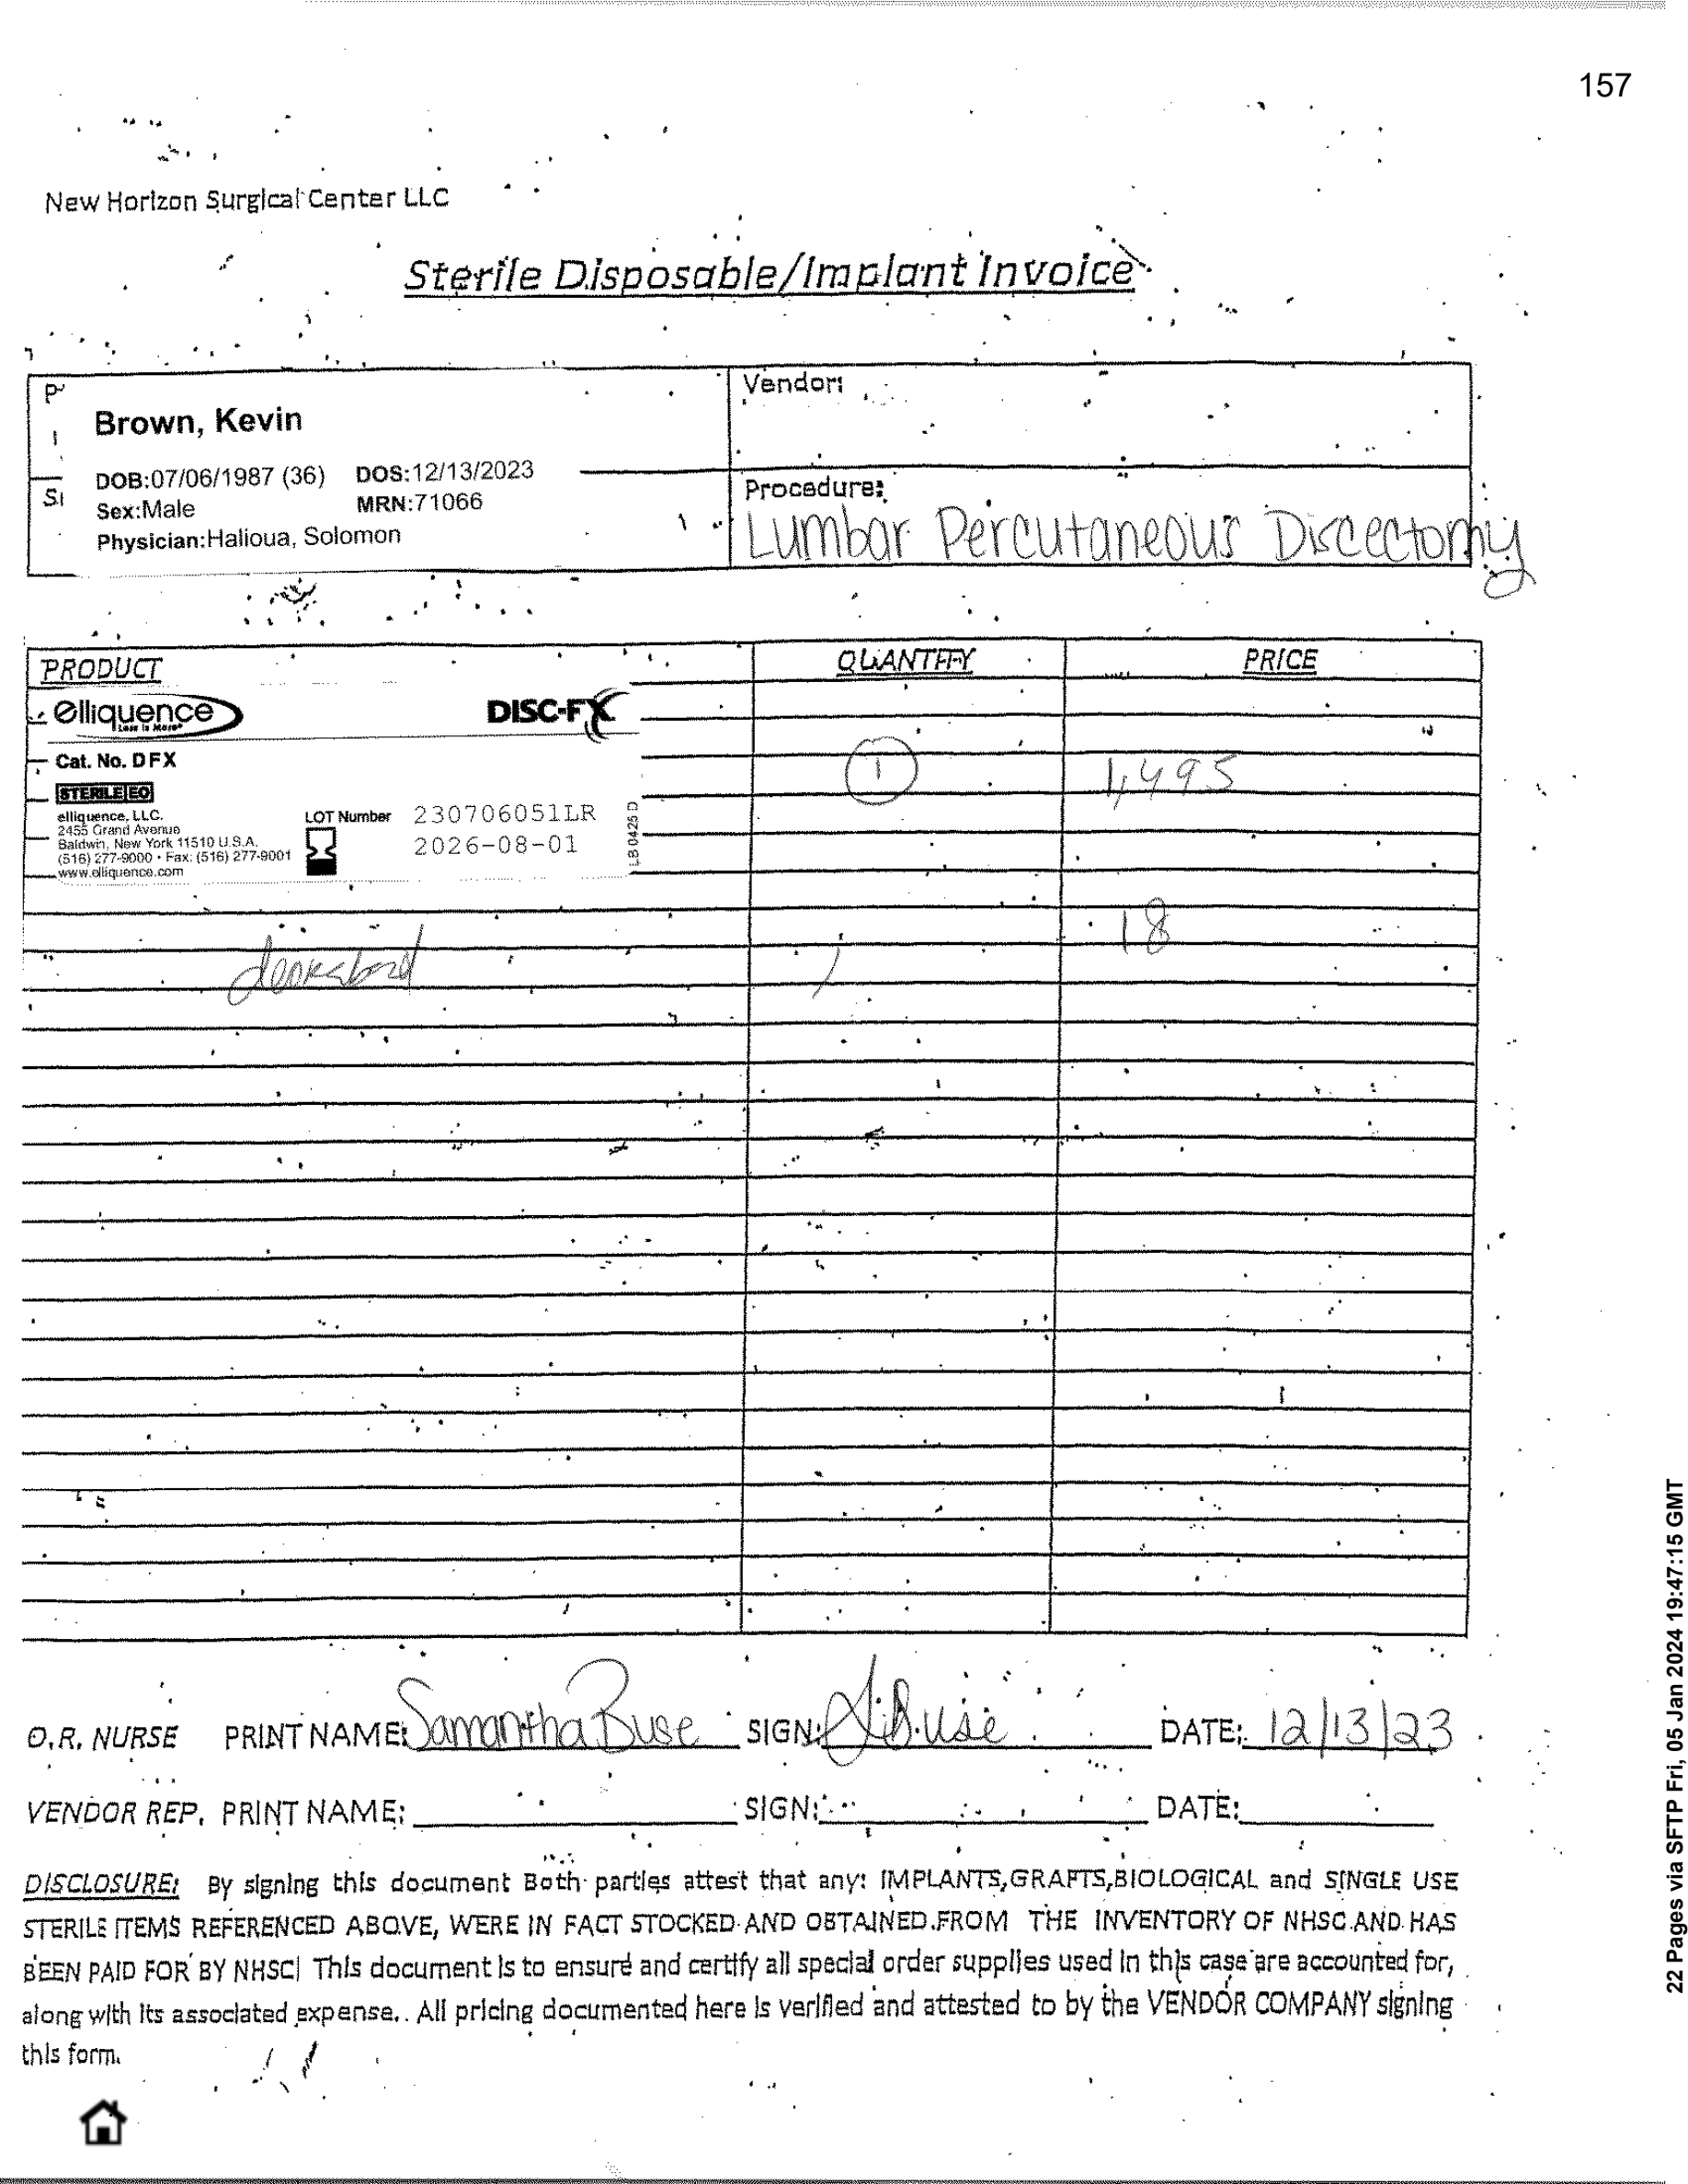 157
New Horizon Surgical Center LLC
Sterile Disposable/Implant Invoice
P
Brown, Kevin
DOB:07/06/1987 (36) DOS:12/13/2023
Sex:Male MRN:71066
Physician:Halioua, Solomon
Vendor:
Procedure:
Lumbar Percutaneous Discectomy
PRODUCT QUANTITY PRICE
elliquence DISC-FX
Less is More
Cat. No. DFX
STERILE EO
elliquence, LLC.
2455 Grand Avenue
Baldwin, New York 11510 U.S.A.
(516) 277-9000 • Fax: (516) 277-9001
www.elliquence.com
LOT Number 230706051LR
2026-08-01
LB 0425 D
1 1,495
1 18
O.R. NURSE PRINT NAME: Samantha Buse SIGN: S.Buse DATE: 12/13/23
VENDOR REP. PRINT NAME: SIGN: DATE:
DISCLOSURE: By signing this document Both parties attest that any: IMPLANTS,GRAFTS,BIOLOGICAL and SINGLE USE
STERILE ITEMS REFERENCED ABOVE, WERE IN FACT STOCKED AND OBTAINED FROM THE INVENTORY OF NHSC AND HAS
BEEN PAID FOR BY NHSC| This document is to ensure and certify all special order supplies used in this case are accounted for,
along with its associated expense.. All pricing documented here is verified and attested to by the VENDOR COMPANY signing
this form.
22 Pages via SFTP Fri, 05 Jan 2024 19:47:15 GMT